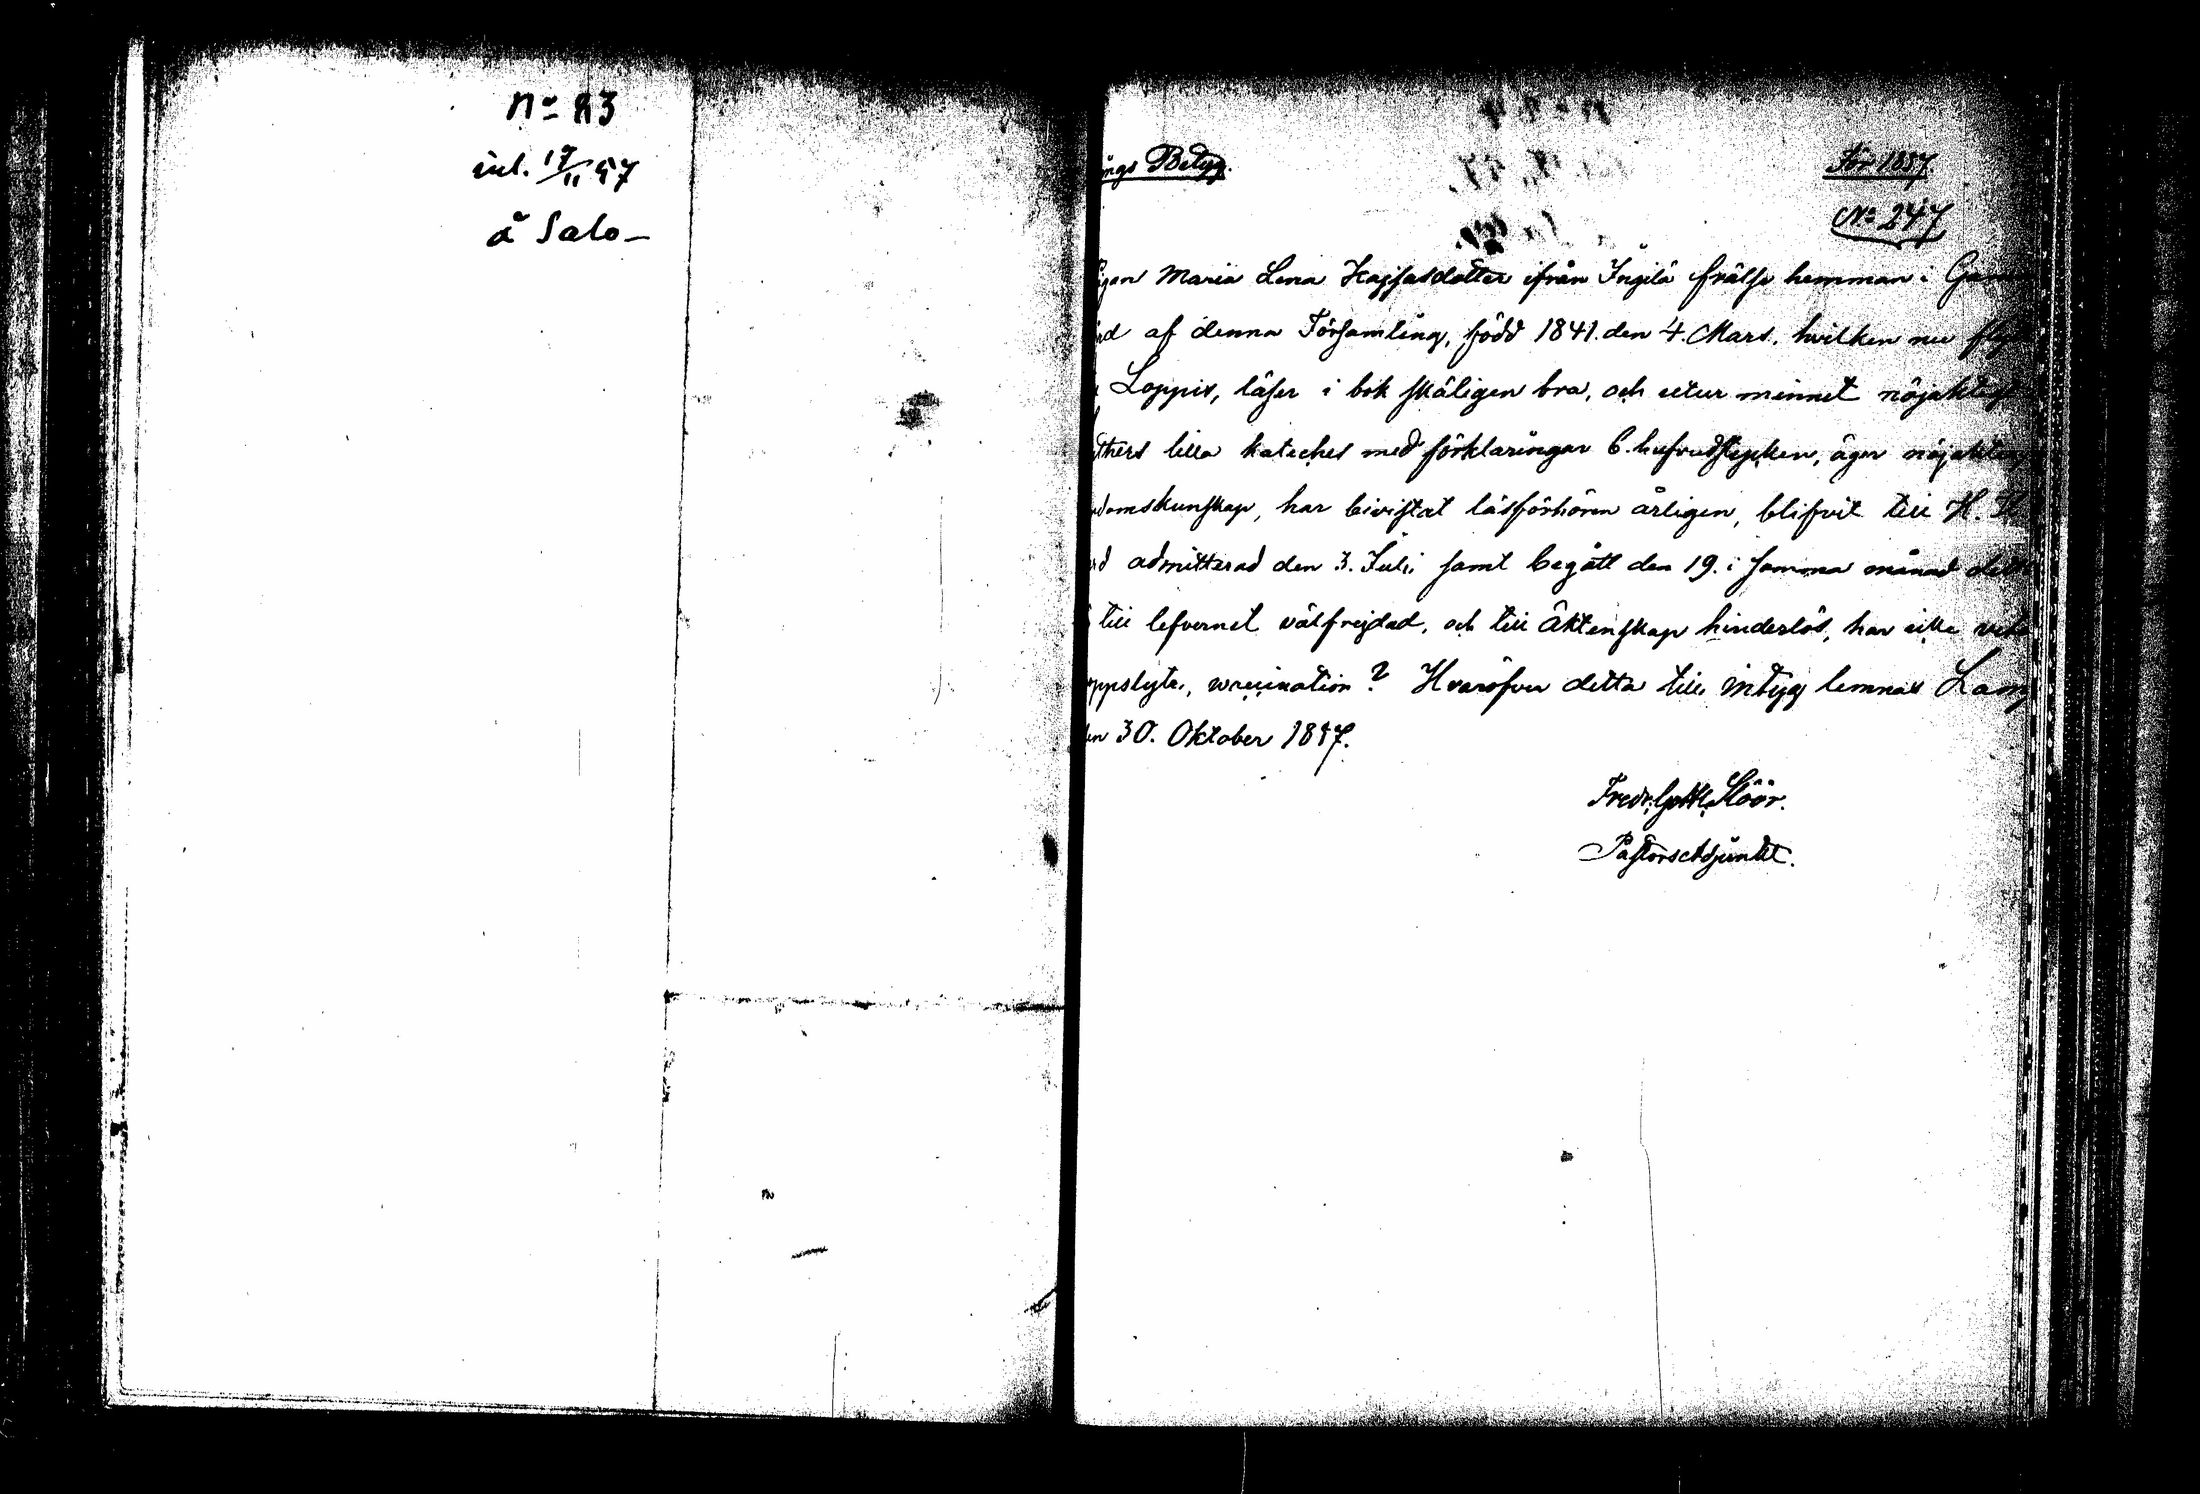 No 83
inl. 17/11 57
å Salo
ngs Betyg.
För 1857.
No 247
igan Maria Lena Kajsasdotter ifrån Ingilä frälse hemman i Gam
rd af denna Församling, född 1841. den 4. Mars. hvilken nu fly
Loppis, läser i bok skäligen bra, och utur minnet nöjaktigt
thers lilla kateches med förklaringar 6. hufvudstycken, äger nöjaktig
domskunskap, har bivistat läsförhören årligen, blifvit till H. H
rd admitterad den 3. Juli samt begått den 19. i samma månad det
till lefvernet välfrejdad, och till äktenskap hinderlös, har icke
oppslyte, vaccination? Hvaröfver detta till intyg lemnas Lam
en 30. Oktober 1857.
Fredr. Gottl. Höör.
PastorsAdjunkt.